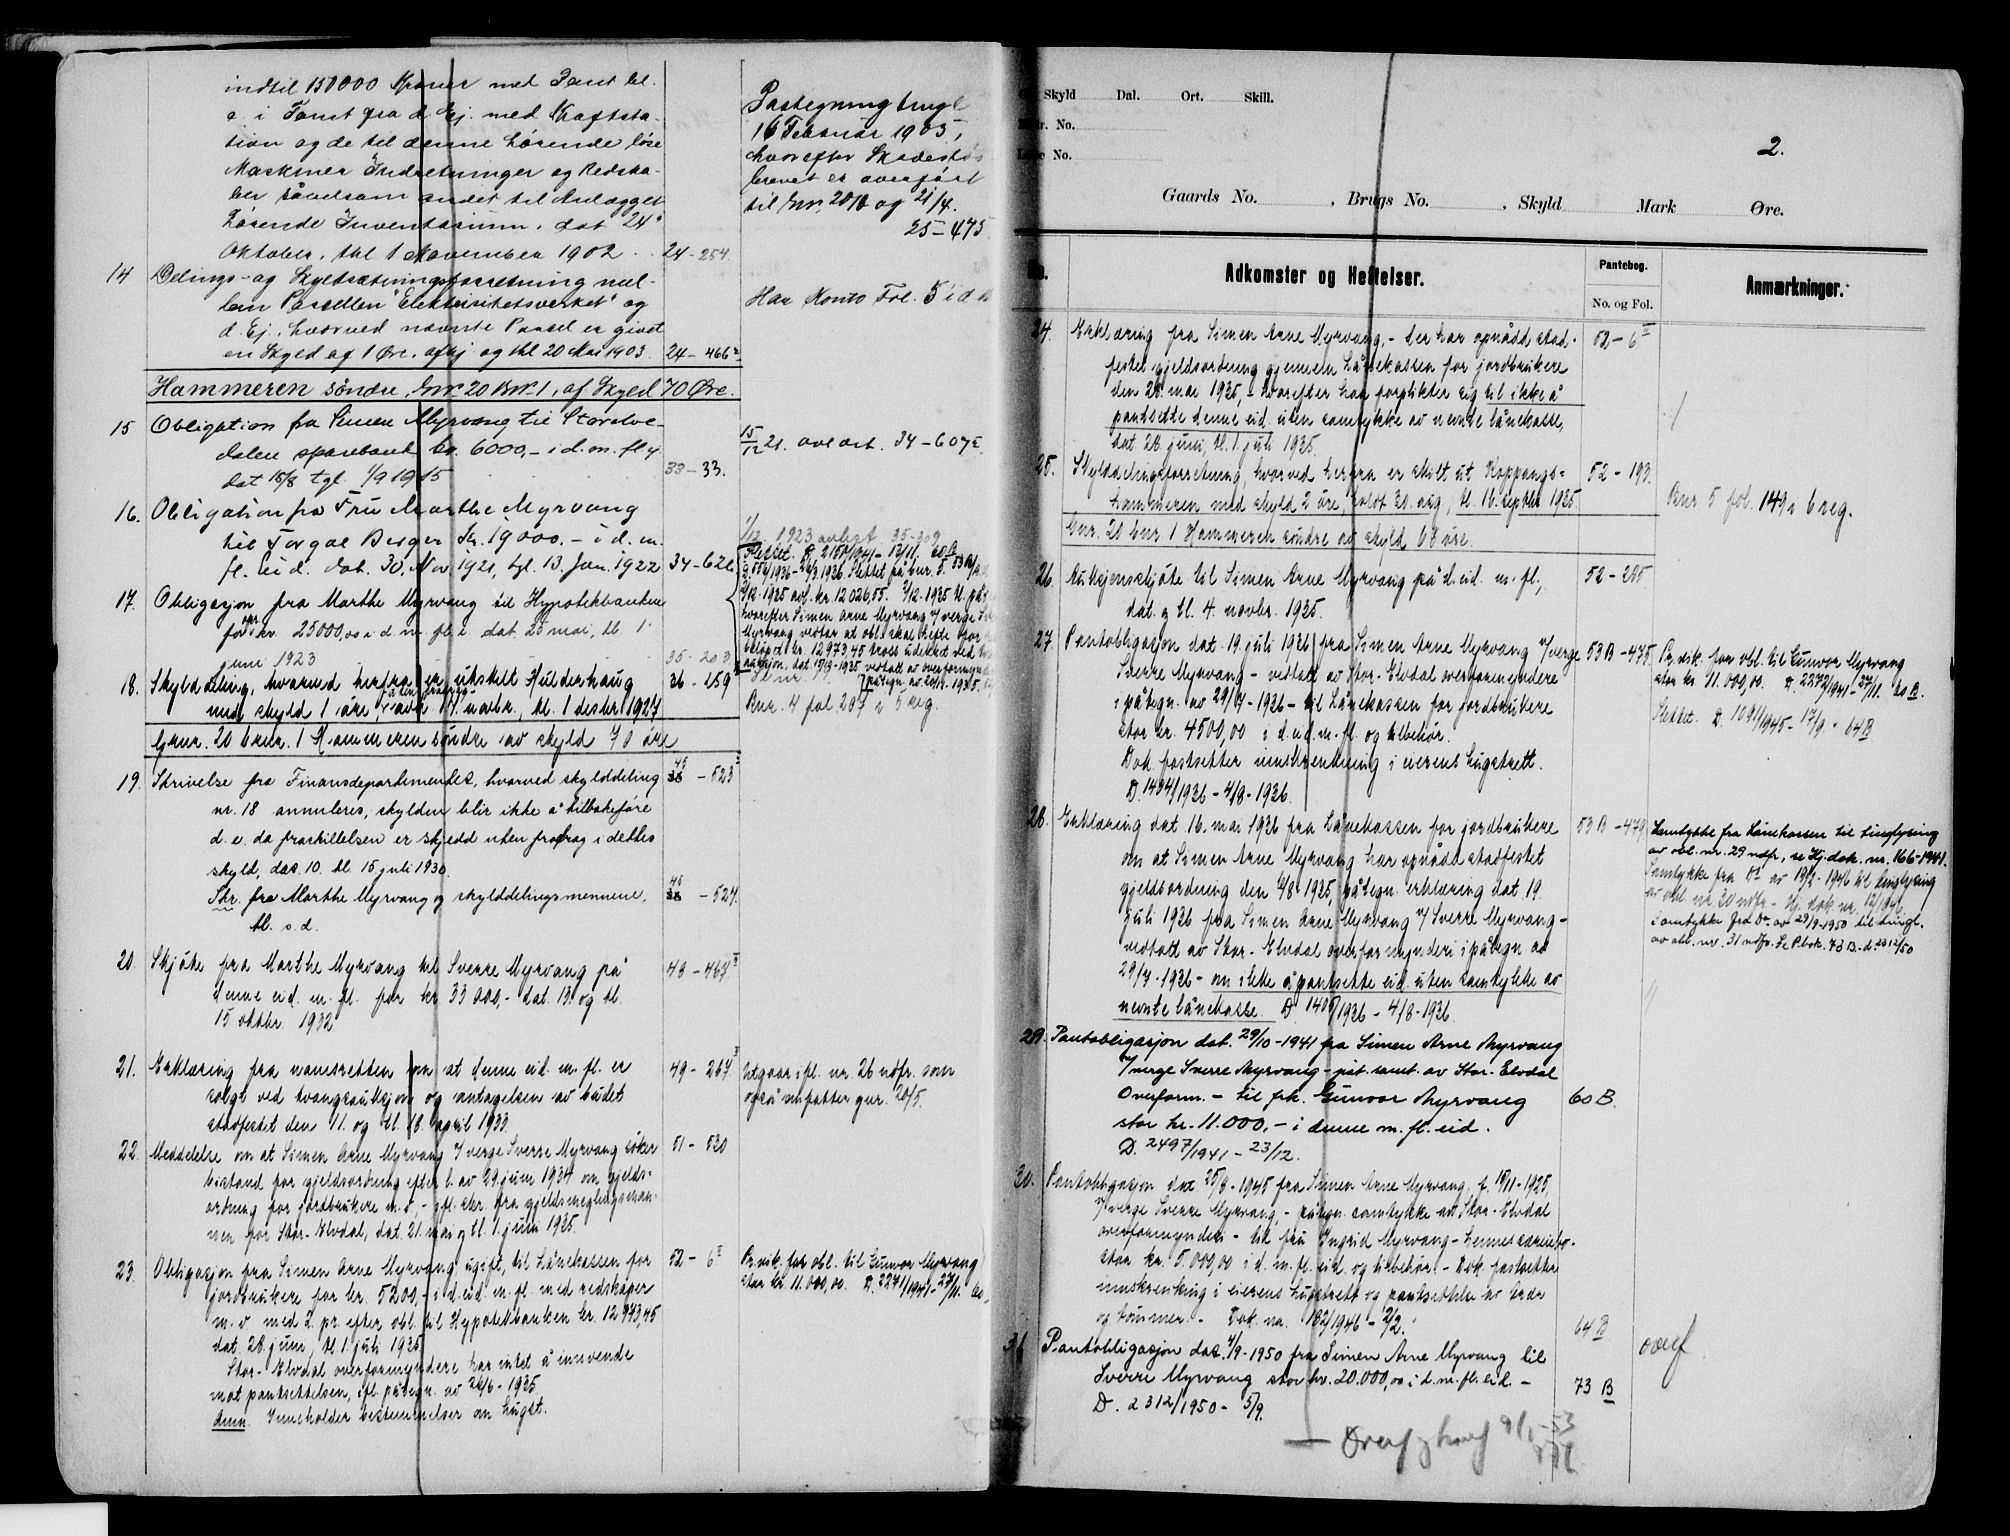 indtil 150000 Kroner med Pant bl.
a. i Tomt fra d. Ej. med Kraftsta-
tion og de til denne hørende løse
Maskiner Indretninger og Redska-
ber såvelsom andet til Anlægget
hørende Inventarium, dat 24.
Oktober, thl 1 November 1902. 24-254
14 Delings- og Skyldsætningsforretning mel-
lem Parcellen "Elektrisitetsverket" og
d. Ej. hvorved nævnte Parcel er givet
en Skyld af 1 Øre, afhj og thl 20 Mai 1903. 24-466
Hammeren søndre, Gnr. 20 Bnr. 1, af Skyld 70 Øre.
15 Obligation fra Simen Myrvang til Storelve-
dalen sparebank kr. 6000,- i d. m. fl. ej
dat 15/8 tgl. 1/9 1915 33-33.
16. Obligation fra Fru Marthe Myrvang
til Torgal Berger Kr. 19000.- i d. m.
fl. eid. dat. 30. Nov. 1921, tgl. 13. Jan. 1922 34-626
17. Obligasjon fra Marthe Myrvang til Hypotekbanken
for kr. 25000,00 i d. m. fl. e. dat. 25 mai, tl. 1.
juni 1923 35-203
18. Skylddeling, hvorved herfra er utskilt Hulderhaug
med skyld 1 øre, novbr., tl. 1 desbr 1927 36-259
Gnr. 20 bnr. 1 Hammeren søndre av skyld 70 øre
19. Skrivelse fra Finansdepartementet, hvorved skylddeling 45-523
nr. 18 annuleres, skylden blir ikke å tilbakeføre
d. e. da fraskillelsen er skjedd uten fradrag i dettes
skyld, dat. 10. tl. 15 juli 1930.
Skr. fra Marthe Myrvang og skylddelingsmennene, 45-524
tl. s. d.
20. Skjøte fra Marthe Myrvang til Sverre Myrvang på 48-464
denne eid. m. fl. for kr. 33000,- dat. 13. og tl.
15. oktbr. 1932
21. Erklæring fra namsretten om at denne eid. m. fl. er 49-267
solgt ved tvangsauksjon og antagelsen av budet
stadfestet den 11. og tl. 18. april 1933.
22. Meddelelse om at Simen Arne Myrvang v/verge Sverre Myrvang søker 51-530
bistand for gjeldsordning efter l. av 29. juni 1934 om gjelds-
ordning for jordbrukere m. v., - ifl. skr. fra gjeldsmeglingsman-
nen for Stor-Elvdal, dat. 21. mai og tl. 1. juni 1935.
23. Obligasjon fra Simen Arne Myrvang, ugift, til Lånekassen for 52-6
jordbrukere for kr. 5200,- i d. eid. m. fl. med redskaper
m. v. med 2. pr. efter obl. til Hypotekbanken kr. 12973,45
dat. 28. juni, tl. 1. juli 1935.
Stor-Elvdal overformyndere har intet å innvende
mot pantsettelsen, ifl. påtegn. av 26/6-1935
Anm. Inneholder bestemmelser om hugst.
Pategning tingl
16 Februar 1905,
hvorefter Skadesløs
brevet er overført
til Gnr. 20/6 og 21/4.
25-475
Har Konto Fol. 5 i d
15/12 21. avl art. 34-607
1/12 1923 avlyst 35-309
Slettet. D. 2150/1941-12/11. 60 B.
Myrvang vedtar at obl. skal hefte for
beløpet kr. 12973,45 tross udekket ved
Bnr. 4 fol. 207 i 5 reg.
Utgaar ifl. nr. 26 ndfr. som
også omfatter gnr. 20/5.
Pr. vik. for obl. til Gunvor Myrvang
stor kr. 11.000,00. D. 2271/1941-27/11. 60
Skyld Dal. Ort. Skill.
No.
No.
2.
Gaards No. , Brugs No. , Skyld Mark Øre.
Adkomster og Heftelser. Pantebog. No. og Fol. Anmærkninger.
24. Erklæring fra Simen Arne Myrvang, - der har opnådd stad- 52-6
festet gjeldsordning gjennem Lånekassen for jordbrukere
den 28. mai 1935, - hvorefter han forplikter sig til ikke å
pantsette denne eid. uten samtykke av nevnte lånekasse,
dat. 28 juni, tl. 1. juli 1935.
25. Skylddelingsforretning, hvorved herfra er skilt ut Koppangs- 52-193
hammeren med skyld 2 øre, holdt 30. aug., tl. 16. septbr 1935.
Gnr. 20 bnr. 1 Hammeren søndre av skyld 68 øre.
26. Auksjonsskjøte til Simen Arne Myrvang på d. eid. m. fl., 52-285
dat. og tl. 4. novbr. 1935.
27. Pantobligasjon dat. 19. juli 1936 fra Simen Arne Myrvang v/verge 53B-475
Sverre Myrvang - vedtatt av Stor-Elvdal overformyndere
i påtegn. av 29/7-1936 - til Lånekassen for jordbrukere
stor kr. 4500,00 i d. eid. m. fl. og tilbehør.
Dok. fastsetter innskrenkning i eierens hugstrett.
D. 1404/1936-4/8-1936.
28. Erklæring dat. 16. mai 1936 fra Lånekassen for jordbrukere 53B-479
om at Simen Arne Myrvang har opnådd stadfestet
gjeldsordning den 4/8 1935, påtegn. erklæring dat. 19.
juli 1936 fra Simen Arne Myrvang v/ Sverre Myrvang -
vedtatt av Stor-Elvdal overformynderi i påtegn av
29/7-1936 - om ikke å pantsette eid. uten samtykke av
nevnte lånekasse. D. 1405/1936-4/8-1936.
29. Pantobligasjon dat. 29/10-1941 fra Simen Arne Myrvang
v/verge Sverre Myrvang - påt. samt. av Stor-Elvdal
Overform. - til frk. Gunvor Myrvang 60 B.
stor kr. 11.000,- i denne m. fl. eid.
D. 2497/1941-23/12.
30. Pantobligasjon dat. 25/8-1945 fra Simen Arne Myrvang, f. 15/11-1925,
v/verge Sverre Myrvang, - påtegn. samtykke av Stor-Elvdal
overformynderi - til fru Ingrid Myrvang
stor kr. 5.000,00 i d. m. fl. eid. og tilbehør. - Dok. fastsetter
innskrenking i eierens hugstrett og pantsettelse av
og tømmer. - Dok. nr. 182/1946-2/2. 64 B
31 Pantobligasjon dat. 4/9-1950 fra Simen Arne Myrvang til
Sverre Myrvang stor kr. 20.000,00 i d. m. fl. eid. - 73 B
D. 2312/1950-5/9.
Bnr. 5 fol. 149 i 6 reg.
Pr. vik. for obl. til Gunvor Myrvang
stor kr. 11.000,00. D. 2272/1941-27/11. 60 B.
Slettet. D. 1091/1945-17/9-64B
Samtykke fra Lånekassen til tinglysing
av obl. nr. 29 ndfr., se Hj.dok. nr. 166-1941.
Samtykke fra do av 19/1-1946 til tinglysing
av obl. nr. 30 ndfr. - Hj. dok nr. 12/1946
Samtykke fra Do. av 29/9-1950 til tingl.
av obl. nr. 31 ndfr. Se P.bok. 73 B-d. 2312/50
overf